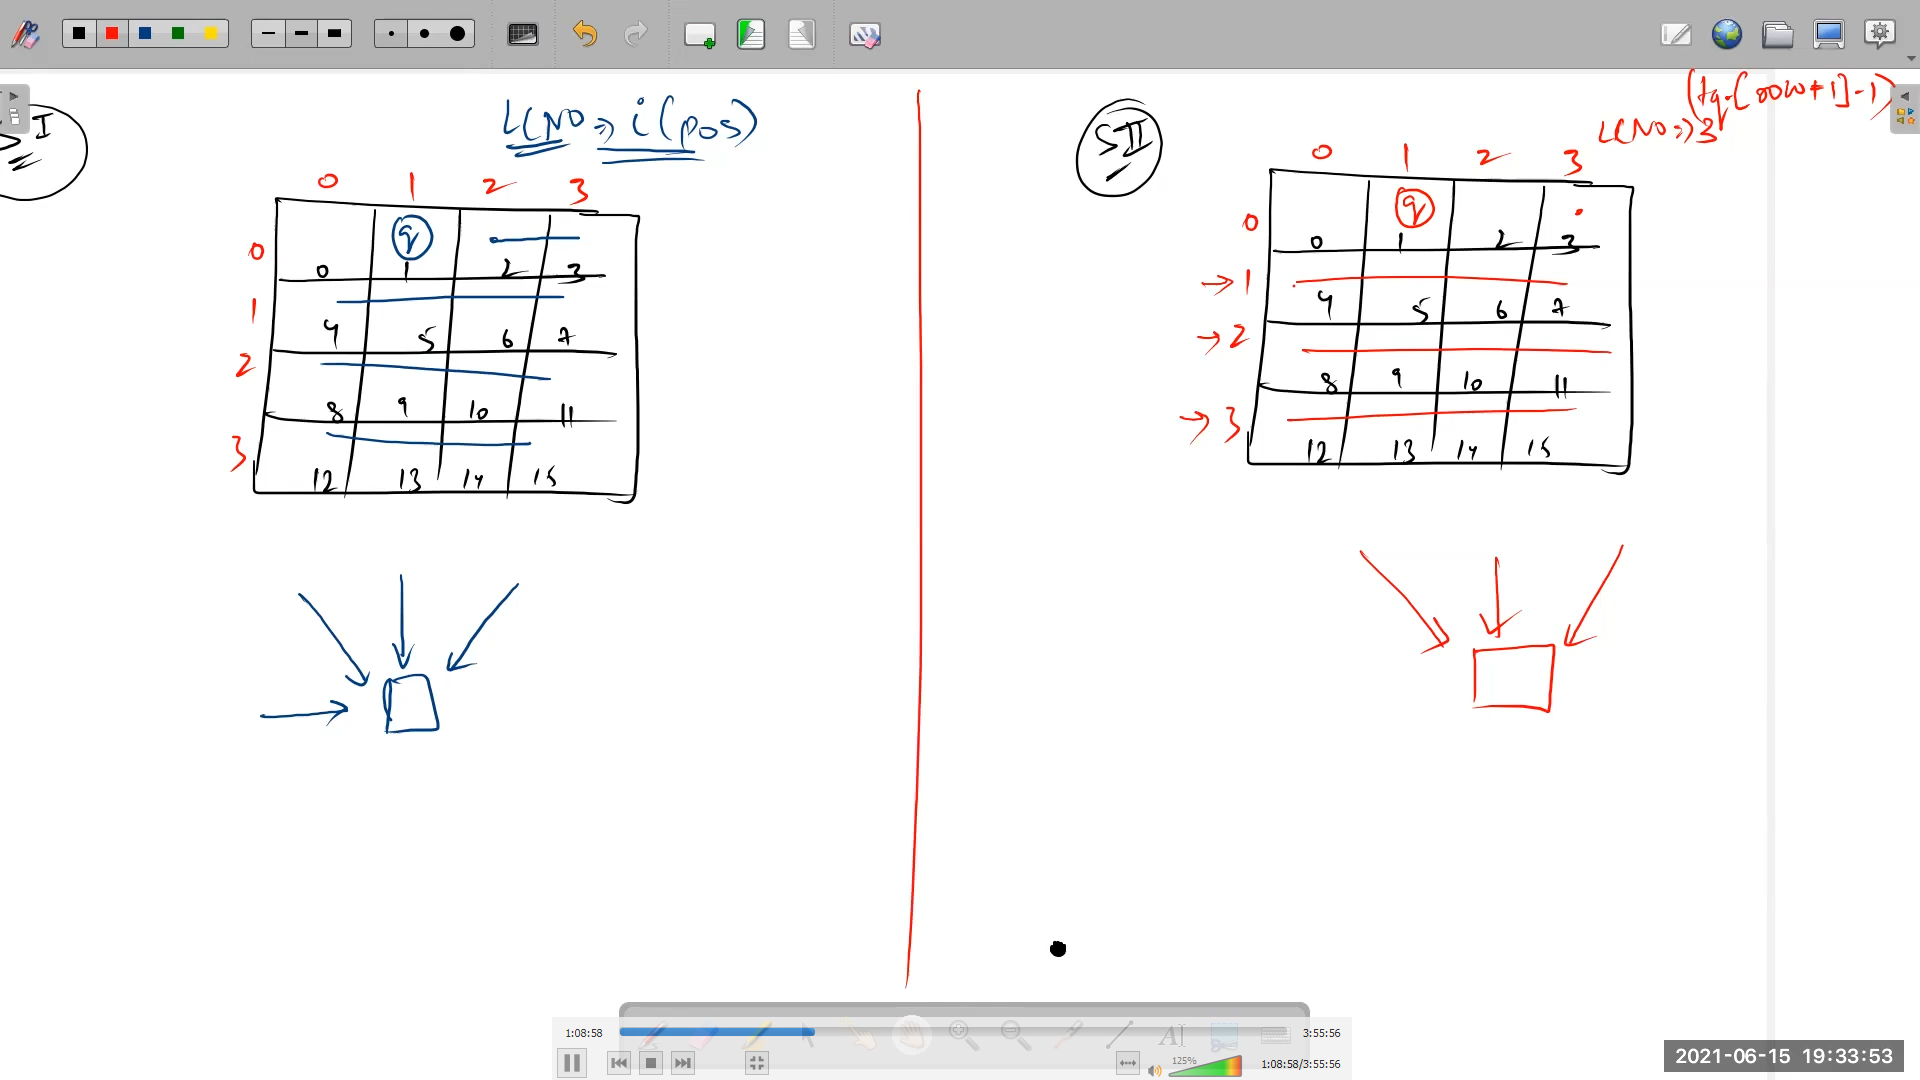 S I
LCNO => i (pos)
0 1 2 3
0 q
0 1 2 3
1
4 5 6 7
2
8 9 10 11
3
12 13 14 15
S II
(tq - [row + 1] - 1)
LCNO => 3
0 1 2 3
0 q
0 1 2 3
→ 1
4 5 6 7
→ 2
8 9 10 11
→ 3
12 13 14 15
1:08:58
3:55:56
125%
1:08:58/3:55:56
2021-06-15 19:33:53